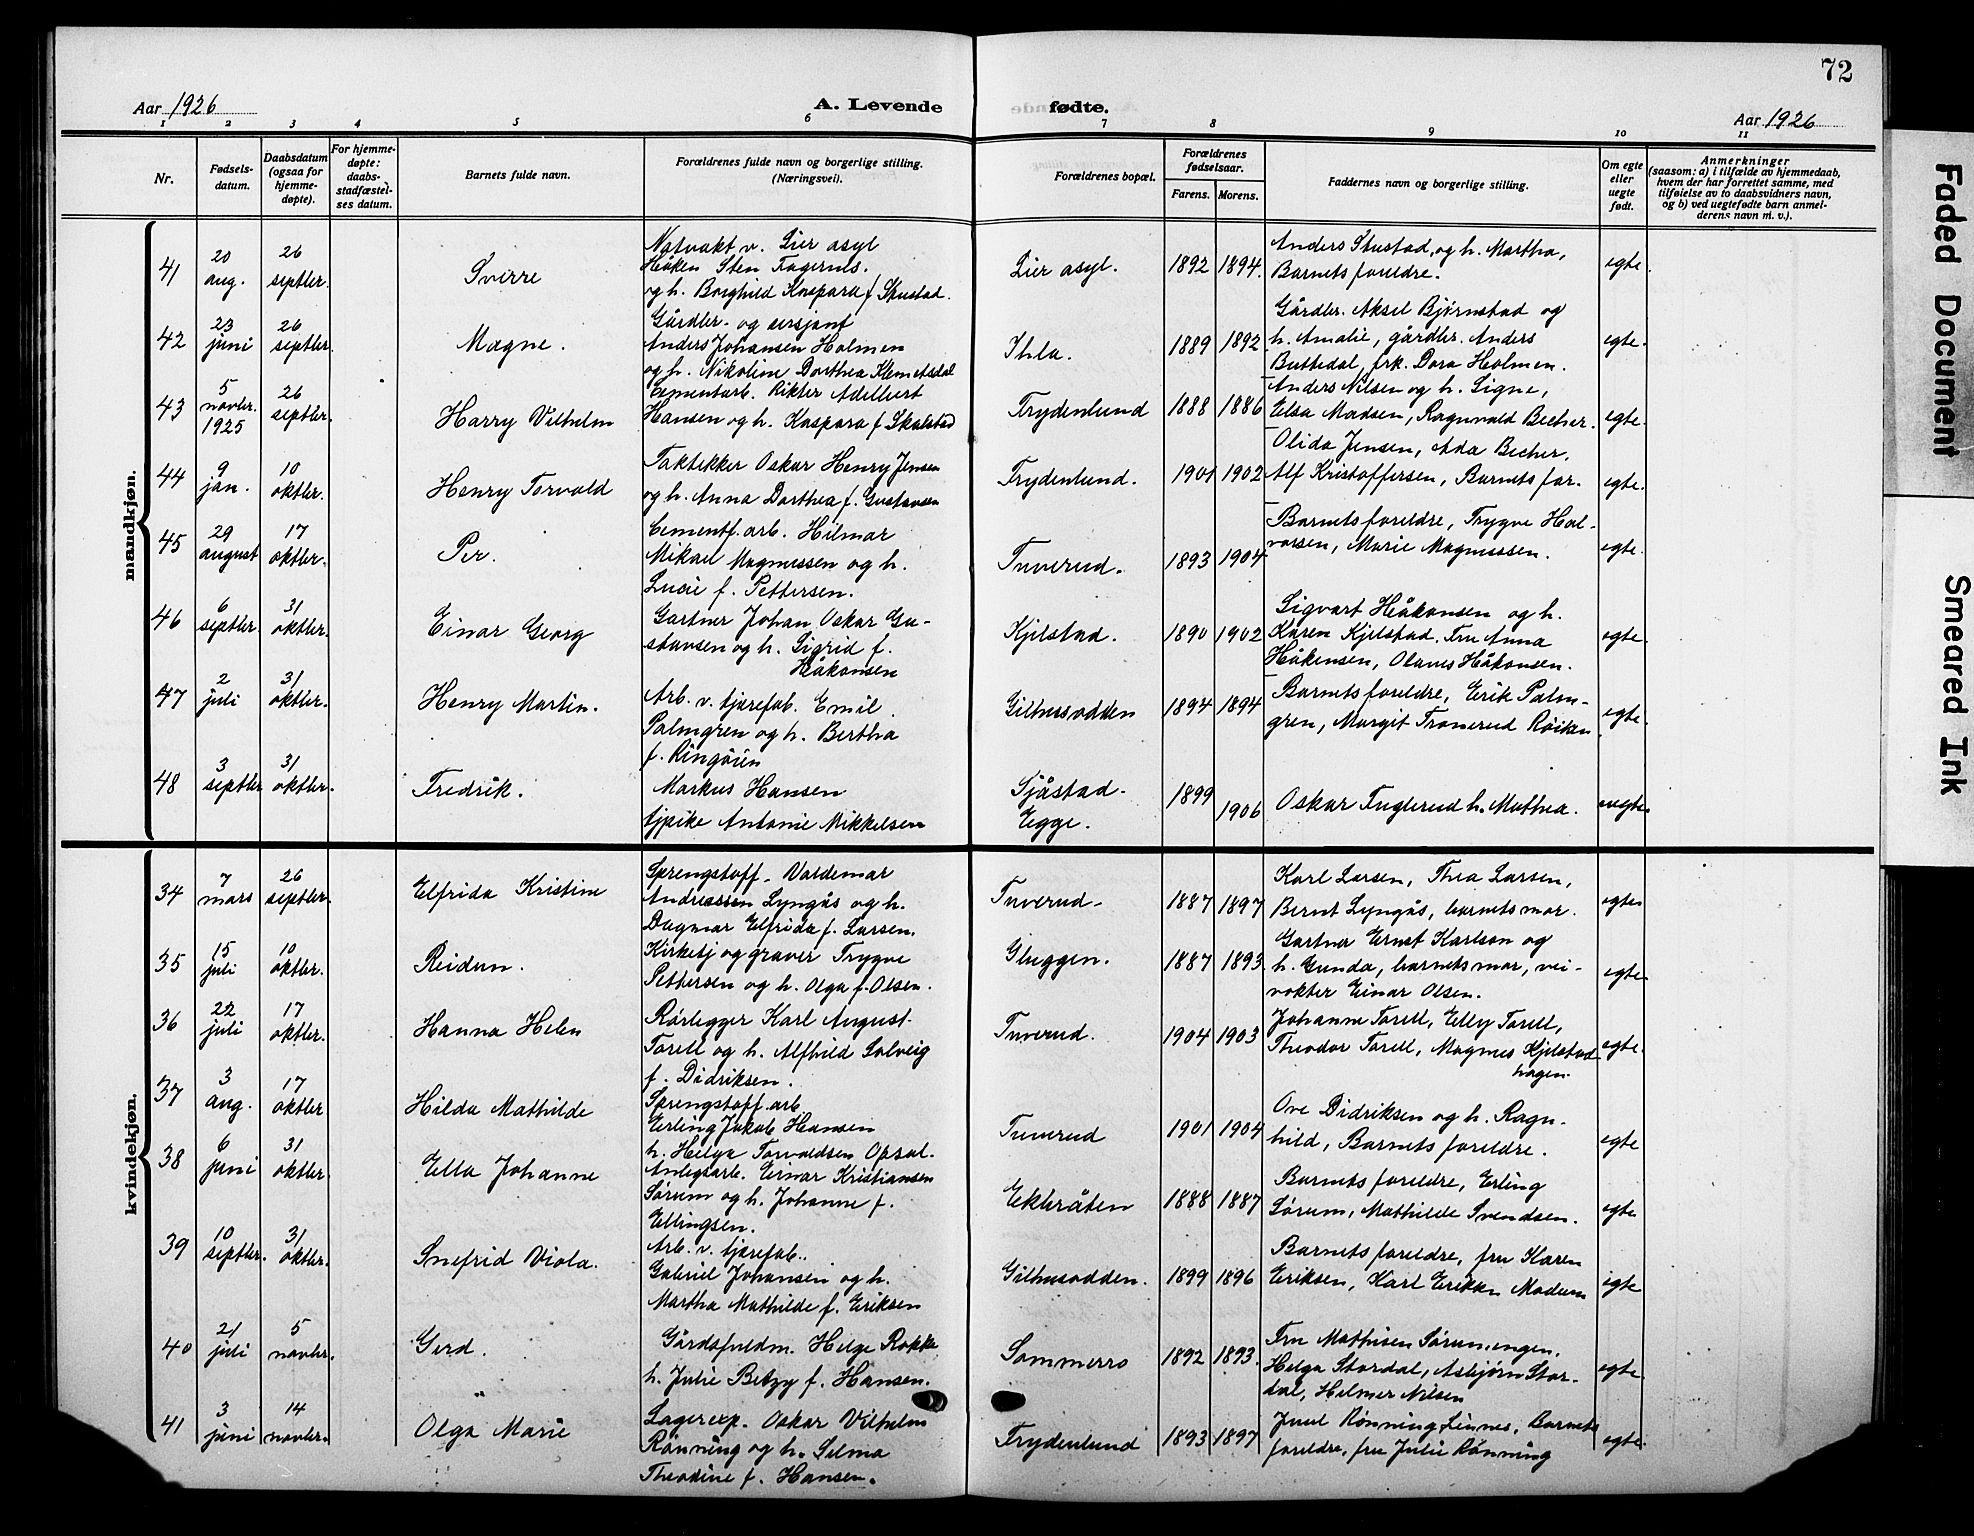 72
Aar 1926
A. Levende
fødte.
Aar 1926
1 2 3 4 5 6 7 8 9 10 11
Nr.
Fødsels-
datum.
Daabsdatum
(ogsaa for
hjemme-
døpte).
For hjemme-
døpte:
daabs-
stadfæstel-
ses datum.
Barnets fulde navn.
Forældrenes fulde navn og borgerlige stilling.
(Næringsvei).
Forældrenes bopæl.
Forældrenes
fødselsaar.
Farens. Morens.
Faddernes navn og borgerlige stilling.
Om egte
eller
uegte
født.
Anmerkninger
(saasom: a) i tilfælde av hjemmedaab,
hvem der har forrettet samme, med
tilføielse av to daabsvidners navn,
og b) ved uegtefødte barn anmel-
derens navn m. v.).
mandkjøn.
41
20
aug.
26
septbr.
Sverre
Natvakt v. Lier asyl
Håken Sten Fagernes.
og h. Borghild Kaspara f. Skustad.
Lier asyl.
1892 1894.
Anders Skustad, og h. Martha,
Barnets foreldre.
egte.
42
23
juni
26
septbr.
Magne.
Gårdbr. og sersjant
Anders Johansen Holmen
og h. Nikoline Dorthea Klemetsdal
Ihla.
1889 1892
Gårdbr. Aksel Bjørnstad og
h. Amalie, gårdbr. Anders
Buttedal, frk. Dora Holmen.
egte.
43
5
novbr.
1925
26
septbr.
Harry Vilhelm
Cementarb. Rikter Adelbert
Hansen og h. Kaspara f. Skalstad
Frydenlund
1888 1886
Anders Nilsen og h. Signe,
Elsa Madsen, Ragnvald Becher.
egte.
44
9
jan.
10
oktbr.
Henry Torvald
Taktekker Oskar Henry Jensen
og h. Anna Dorthea f. Gustavsen
Frydenlund.
1901 1902
Olida Jensen, Ada Becher,
Alf Kristoffersen, Barnets far.
egte.
45
29
august
17
oktbr.
Per.
Cementf. arb. Hilmar
Mikael Magnussen og h.
Lucie f. Pettersen.
Tuverud.
1893 1904
Barnets foreldre, Trygve Hal-
vorsen, Marie Magnussen.
egte.
46
6
septbr.
31
oktbr.
Einar Georg
Gartner Johan Oskar Gu-
stavsen og h. Sigrid f.
Håkonsen
Kjelstad.
1890 1902
Sigvart Håkonsen og h.
Karen Kjelstad. Fru Anna
Håkensen, Olaves Håkonsen.
egte.
47
2
juli
31
oktbr.
Henry Martin.
Arb. v. tjærefab. Emil
Palmgren og h. Bertha
f. Ringöien
Gilhusodden
1894 1894
Barnets foreldre, Erik Palm-
gren, Margit Tronerud Röiken
egte.
48
3
septbr.
31
oktbr.
Fredrik.
Markus Hansen
tjpike Antonie Mikkelsen
Sjåstad.
Egge.
1899
1906
Oskar Fuglerud h. Mathea.
uegte
kvindekjøn.
34
7
mars
26
septbr.
Elfrida Kristine
Sprengstoff. Valdemar
Andreassen Lyngås og h.
Dagmar Elfrida f. Larsen.
Tuverud.
1887 1897
Karl Larsen, Thea Larsen,
Bernt Lyngås, barnets mor.
egte
35
15
juli
10
oktbr.
Reidun.
Kirketj og graver Trygve
Pettersen og h. Olga f. Olsen.
Gluggen.
1887 1893
Gartner Ernst Karlson og
h. Gunda, barnets mor, vei-
vokter Einar Olsen.
egte
36
22
juli
17
oktbr.
Hanna Helen
Rørlegger Karl August
Torell og h. Alfhild Solveig
f. Didriksen.
Tuverud.
1904 1903
Johanne Torell, Elly Torell,
Theodor Torell, Magnus Kjelstad
hagen.
egte.
37
3
aug.
17
oktbr
Hilda Mathilde
Sprengstoff. arb
Erling Jakob Hansen
h. Helga Torvaldsen Opsal.
Tuverud
1901 1904
Ove Didriksen og h. Ragn-
hild, Barnets foreldre.
egte
38
6
juni
31
oktbr.
Ella Johanne
Anlegsarb. Einar Kristiansen
Sørum og h. Johanne f.
Ellingsen.
Ekbråten
1888 1887
Barnets foreldre, Erling
Sørum, Mathilde Svendsen.
egte
39
10
septbr.
31
oktbr.
Snefrid Viola.
Arb. v. tjærefab.
Gabriel Johansen og h.
Martha Mathilde f. Eriksen
Gilhusodden.
1899 1896
Barnets foreldre, fru Karen
Eriksen, Karl Eriksen Modum
egte
40
21
juli
5
novbr.
Gerd.
Gårdsfuldm. Helge Rokke
h. Julie Betzy f. Hansen.
Sommerro
1892 1893.
Fru Mathisen Sørumengen.
Helga Stordal, Asbjørn Stor-
dal, Helmer Nilsen
egte.
41
3
juni
14
novbr.
Olga Marie
Lagerexp. Oskar Vilhelm
Rønning og h. Selma
Theodine f. Hansen.
Frydenlund
1893 1897
Juul Rønning Linnes, Barnets
foreldre, fru Julie Rønning
egte.
Faded Document
Smeared Ink